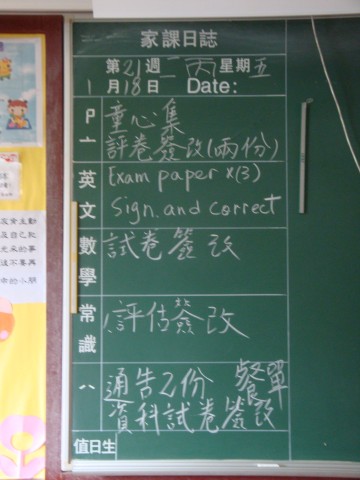 家課日誌
第21週 二丙 星期五
1月18日 Date:
中 童心集
評卷簽改(兩份)
英文 Exam paper x(3)
Sign. and correct
數學 試卷簽改
常識 評估簽改
八 通告乙份 餐單
資科試卷簽改
值日生